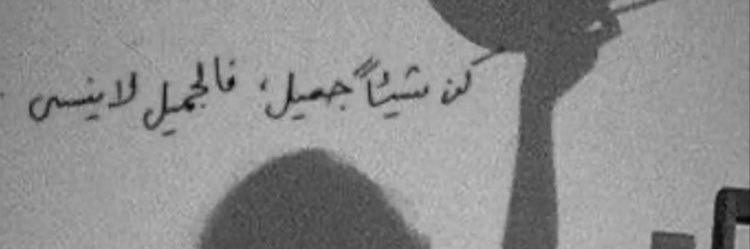 كن شيئاً جميل، فالجميل لا ينسى